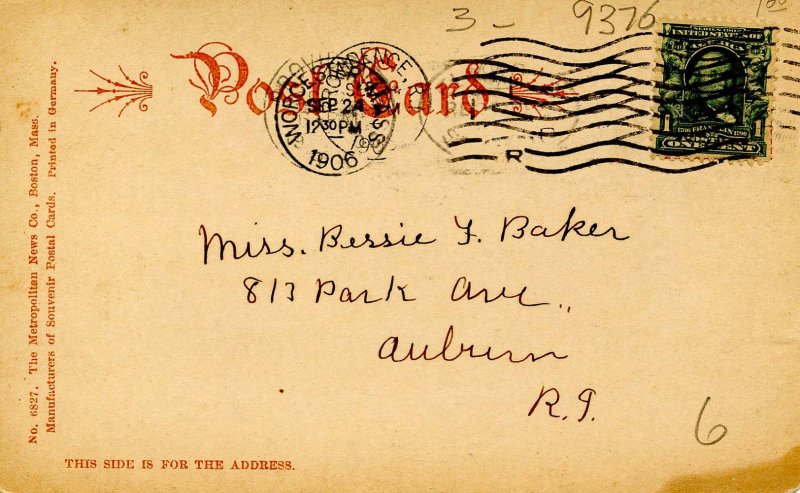 3 - 9376
Post Card
WORCESTER MASS
SEP 24
12 30 PM
1906
R
SERIES 1902
UNITED STATES OF
AMERICA
1 1
ONE CENT
Miss. Bessie F. Baker
813 Park Ave.,
Auburn
R.I.
6
No. 6827. The Metropolitan News Co., Boston, Mass.
Manufacturers of Souvenir Postal Cards. Printed in Germany.
THIS SIDE IS FOR THE ADDRESS.